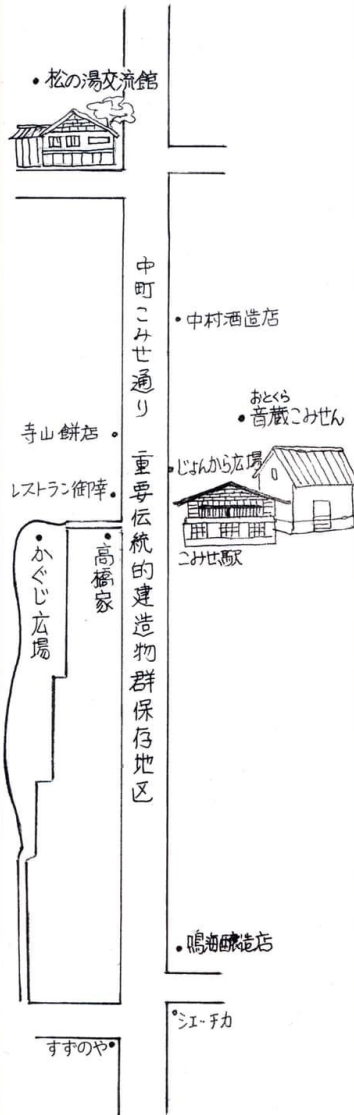 ・松の湯交流館
中町こみせ通り 重要伝統的建造物群保存地区
・中村酒造店
おとくら
・音蔵こみせん
寺山餅店・
・じょんから広場
レストラン御幸・
こみせ駅
・高橋家
・かぐじ広場
・鳴海醸造店
・シエーチカ
すずのや・